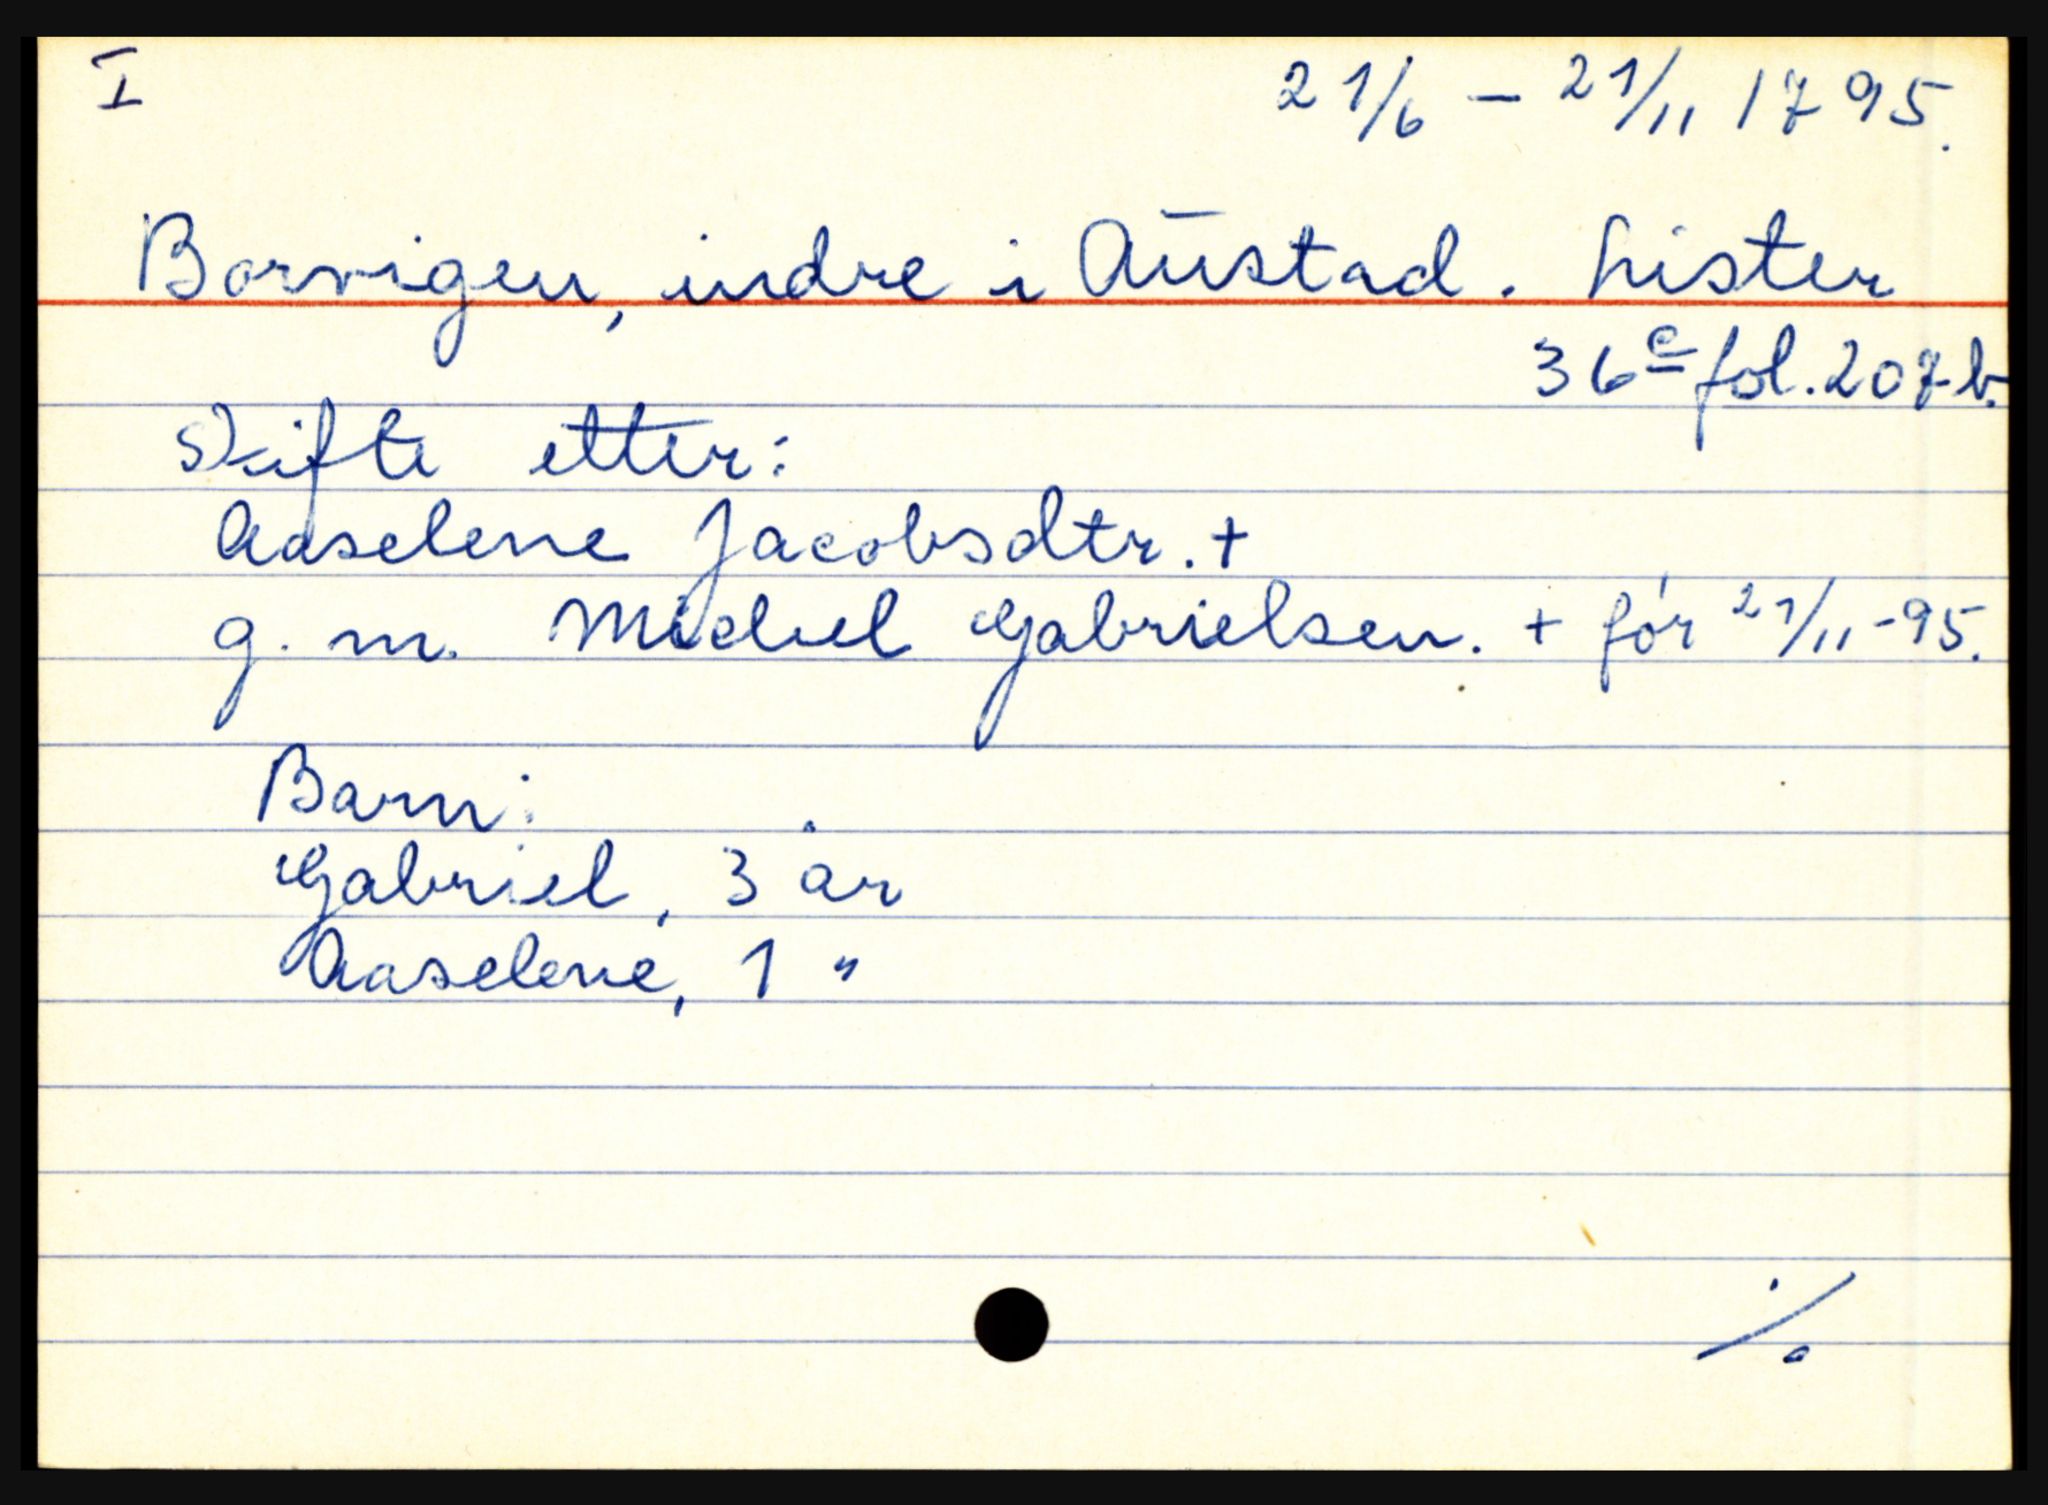 I
21/6 - 21/11 1795.
Borvigen, indre i Austad. Lister
36c fol. 207b.
Skifte etter:
Aaselene Jacobsdtr. +
g. m. Michel Gabrielsen. + før 21/11-95.
Barn:
Gabriel, 3 år
Aaselene, 1 "
./.